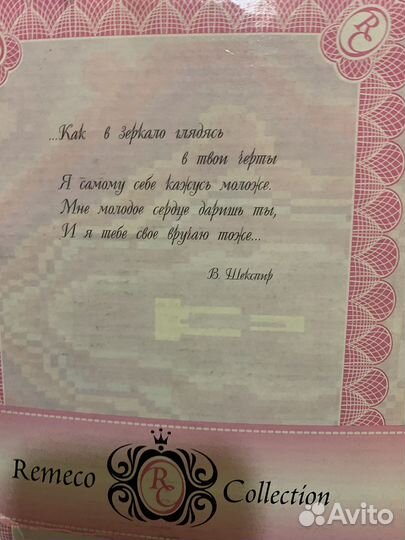 RC
...Как в зеркало глядясь
в твои черты
Я самому себе кажусь моложе.
Мне молодое сердце даришь ты,
И я тебе свое вручаю тоже...
В. Шекспир
Remeco RC Collection
Avito